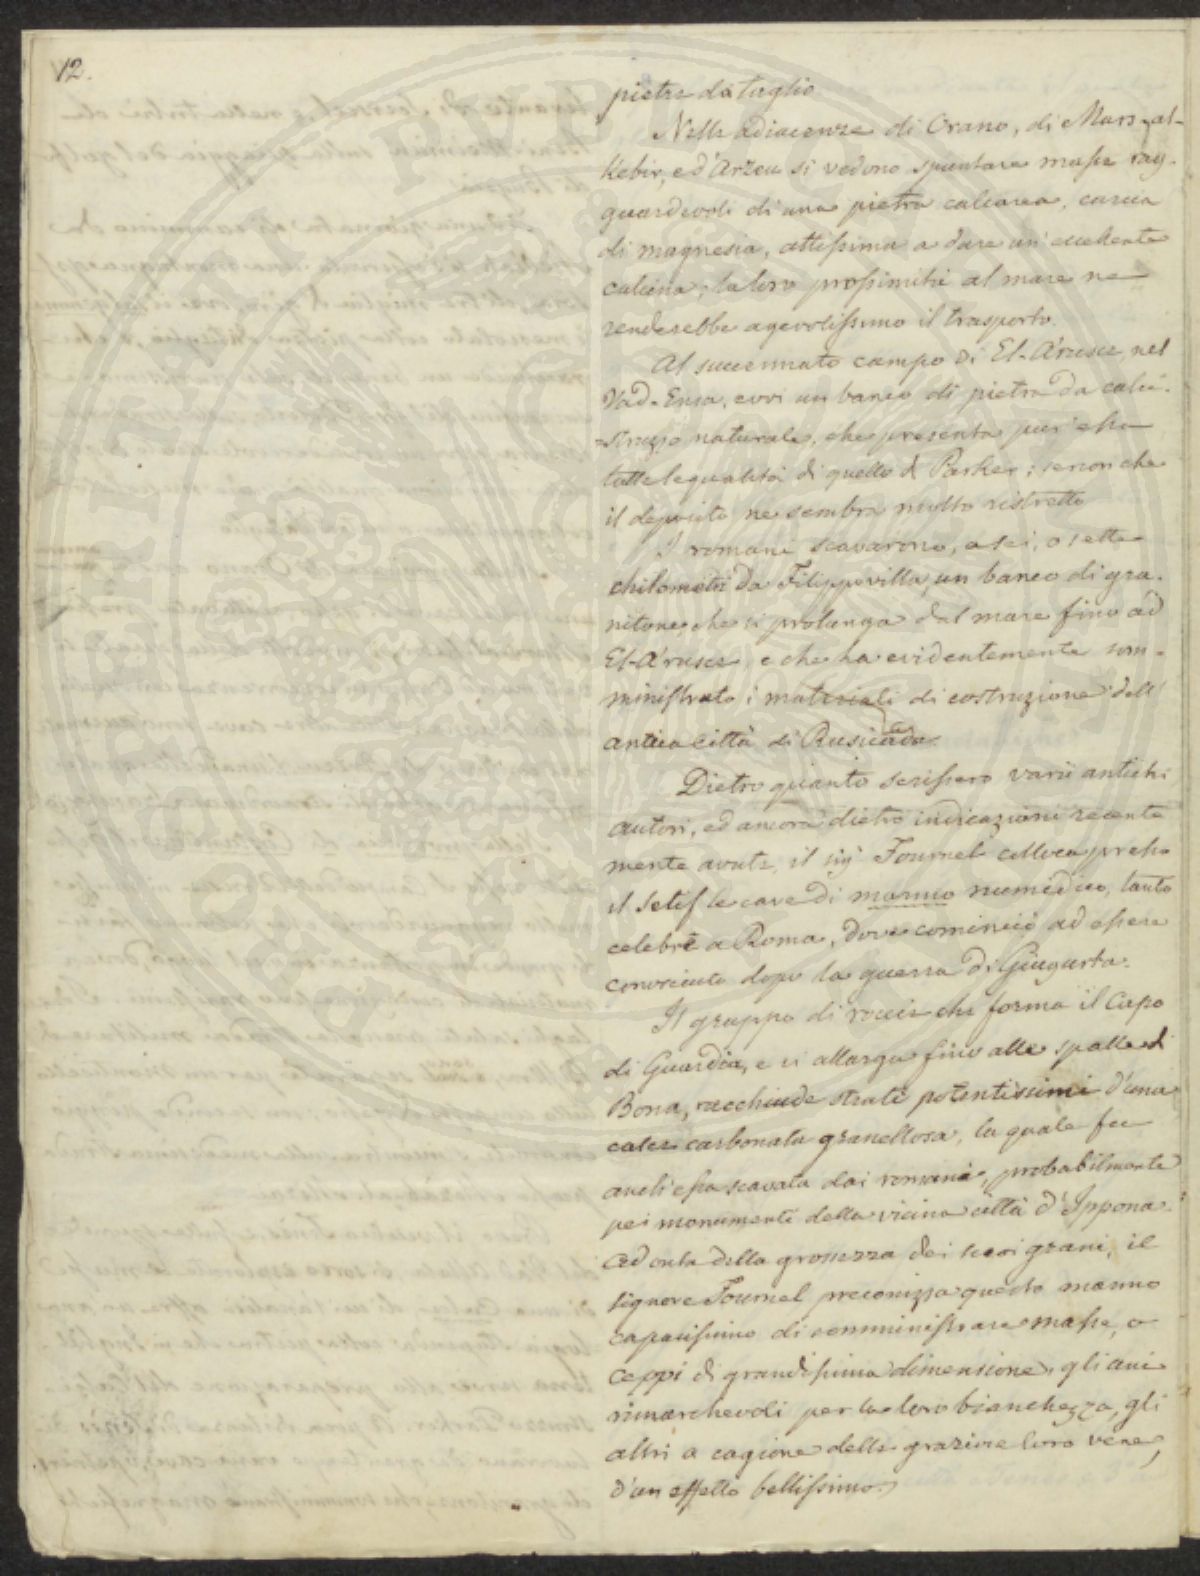 12.
pietre da taglio
Nelle adiacenze di Orano, di Mars-al-
Kebir, e d'Arzeu si vedono spuntare masse rag-
guardevoli di una pietra calcarea, carica
di magnesia, attissima a dare un' eccellente
calcina; la loro prossimità al mare ne
renderebbe agevolissimo il trasporto.
Al succennato campo di El-A'rusce, nel
Vad-Ensa, evvi un banco di pietra da calce-
struzzo naturale, che presenta pur essa
tutte le qualità di quello di Parker; se non che
il deposito ne sembra molto ristretto
I romani scavarono, a sei, o sette
chilometri da Filippevilla, un banco di gra-
nitone, che si prolunga dal mare fino ad
El-A'rusce, e che ha evidentemente som-
ministrato i materiali di costruzione dell'
antica città di Rusicada.
Dietro quanto scrissero varii antichi
autori, ed ancora dietro indicazioni recente
mente avute, il sig. Fournel colloca presso
il Setif le cave di marmo numidico, tanto
celebre a Roma, dove cominciò ad essere
conosciuto dopo la guerra di Giugurta.
Il gruppo di roccie che forma il Capo
di Guardia, e si allarga fino alle spalle di
Bona, racchiude strati potentissimi d'una
calce carbonata granellosa, la quale fu
anch'essa scavata dai romani, probabilmente
pei monumenti della vicina città d'Ippona.
Ad onta della grossezza dei suoi grani, il
signore Fournel preconizza questo marmo
capacissimo di somministrare masse, o
ceppi di grandissima dimensione, gli uni
rimarchevoli per la loro bianchezza, gli
altri a cagione delle graziose loro vene,
d'un effetto bellissimo.